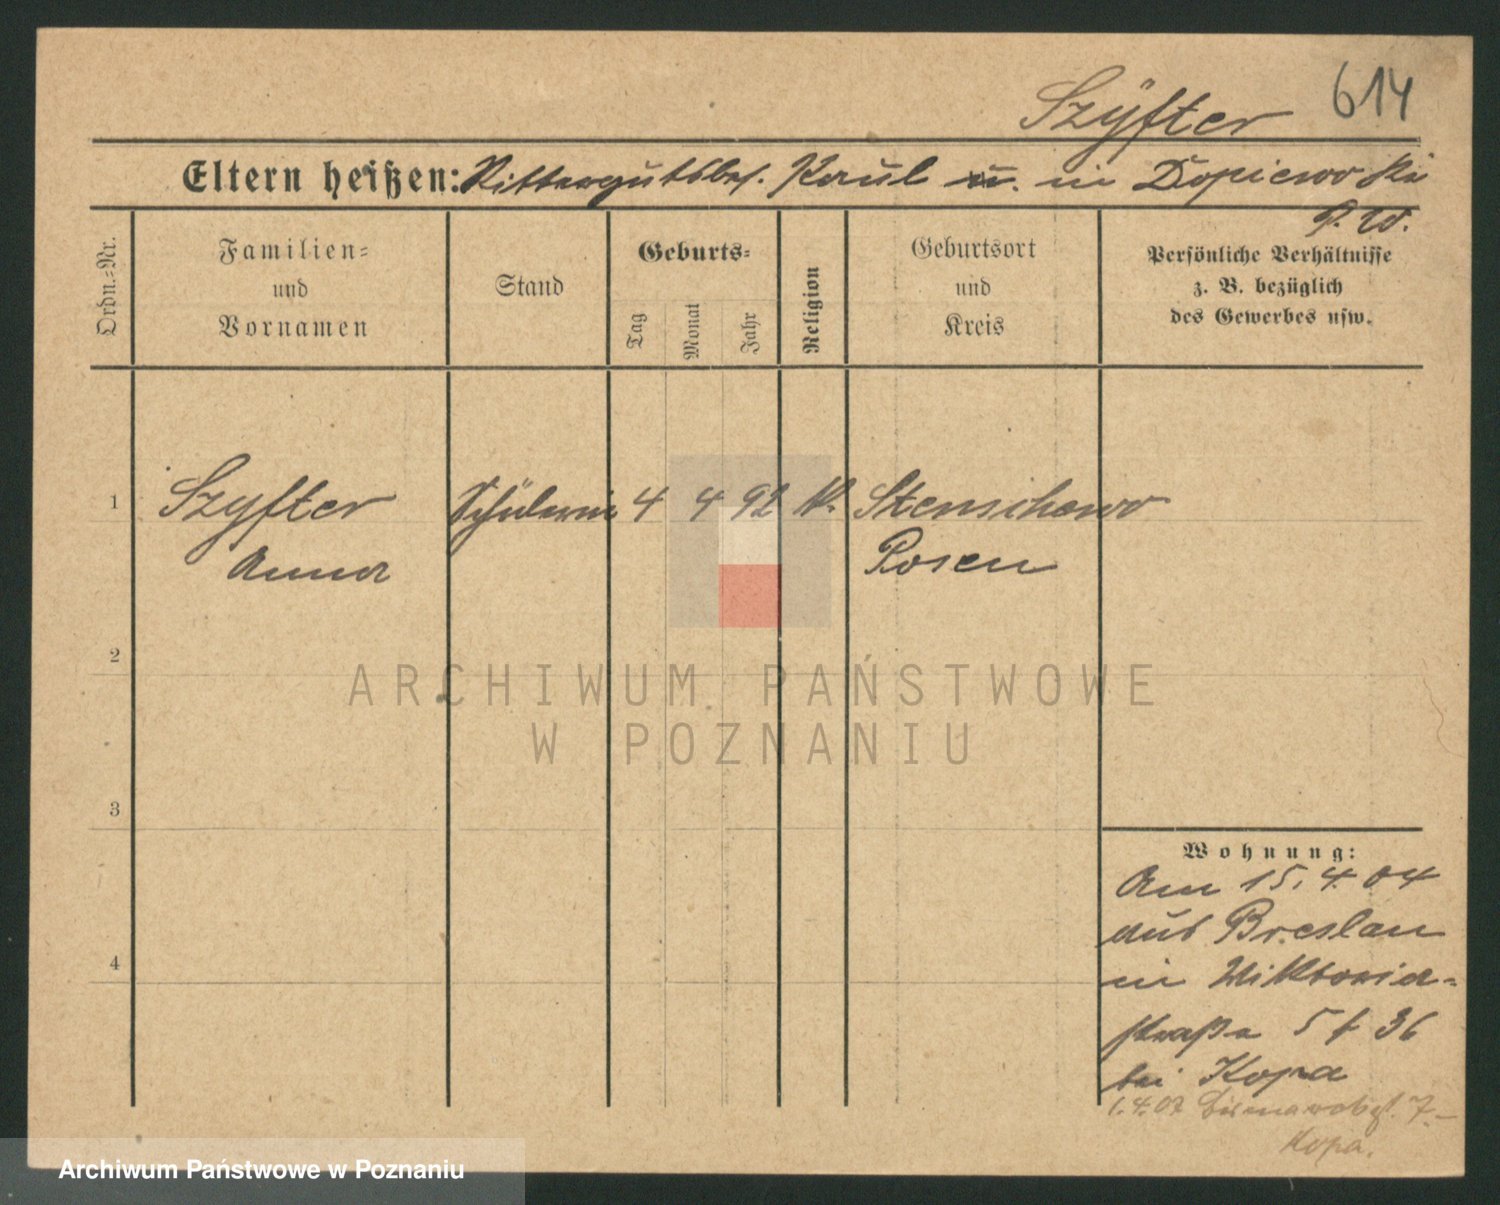 614
Szÿfter
Eltern heißen: Rittergutsbes. Karul u. in Dopiewo
P. W.
Ordn.-Nr.
Familien-
und
Vornamen
Stand
Geburts-
Tag
Monat
Jahr
Religion
Geburtsort
und
Kreis
Persönliche Verhältnisse
z. B. bezüglich
des Gewerbes usw.
1 Szyfter Schülerin 4 4 92 K. Stenschewo
Anna Posen
2
3
4
Wohnung:
Am 15. 4. 04
aus Breslau
in Wiktoria-
straße 5 f 36
bei Kopa
1.4.07 7.-
Kopa.
ARCHIWUM PAŃSTWOWE
W POZNANIU
Archiwum Państwowe w Poznaniu